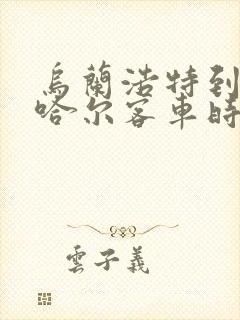 烏蘭浩特到
哈尔客車時
雲子義